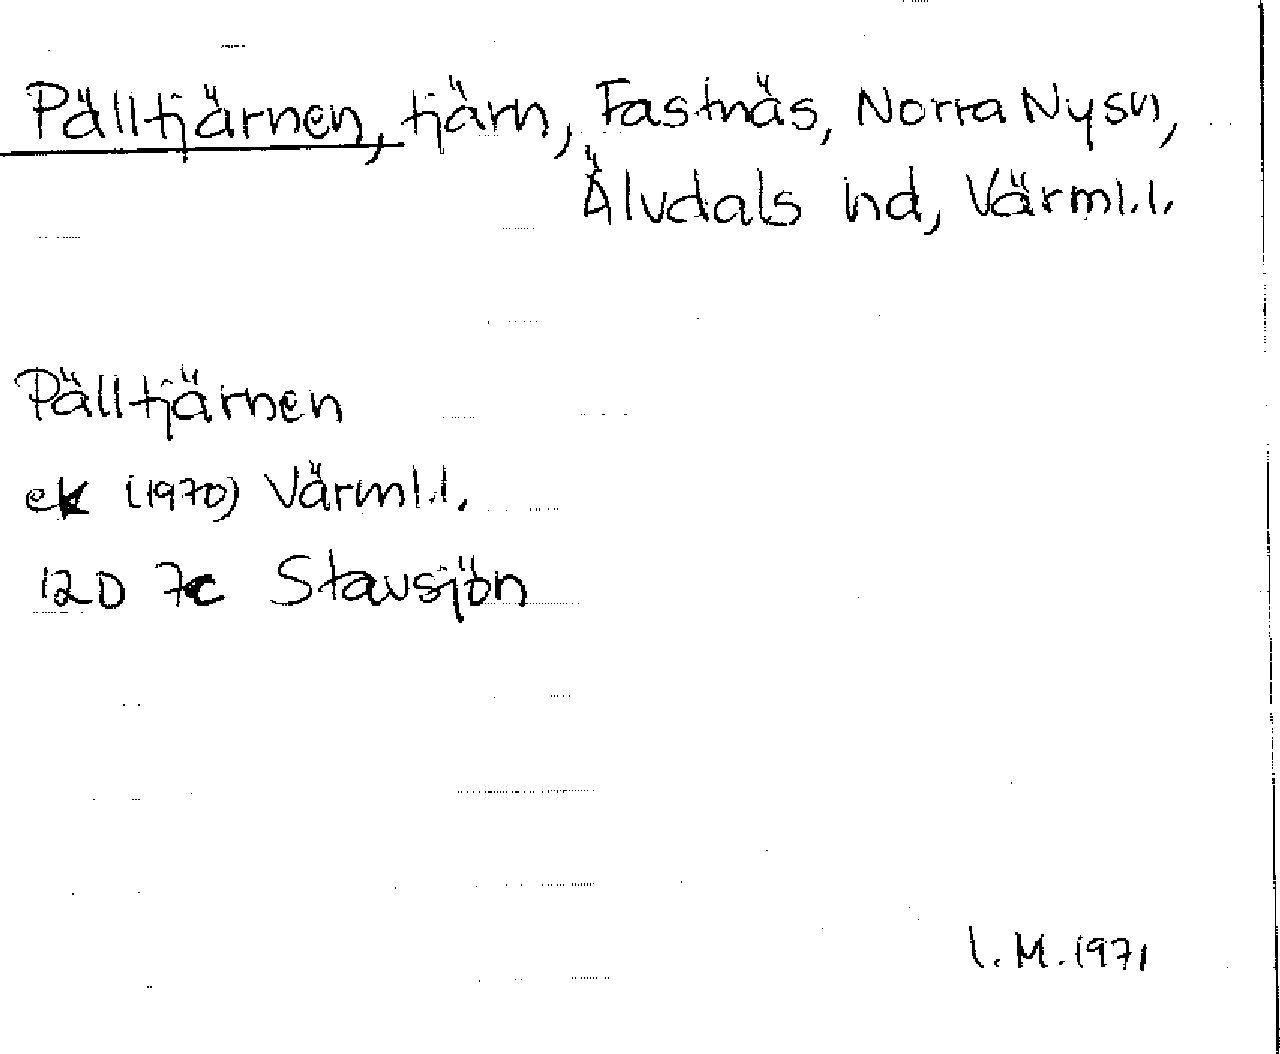 Pälltjärnen, tjärn, Fastnäs, Norra Nysn,
Älvdals hd, Värml.l.
Pälltjärnen
ek (1970) Värml.l.
12D 7c Stavsjön
I.M. 1971